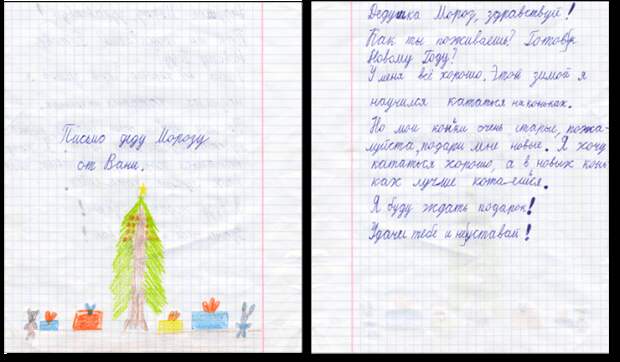 Письмо деду Морозу
от Вани.
Дедушка Мороз, здравствуй!
Как ты поживаешь? Готов к
Новому Году?
У меня всё хорошо. Этой зимой я
научился кататься на коньках.
Но мои коньки очень старые, пожа-
луйста, подари мне новые. Я хочу
кататься хорошо, а в новых конь
ках лучше ката-ешься.
Я буду ждать подарок!
Удачи тебе и неуставай!